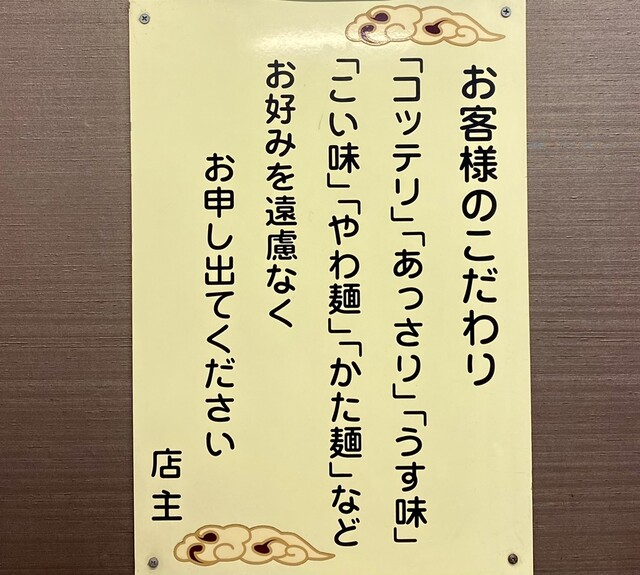 お客様のこだわり
「コッテリ」「あっさり」「うす味」
「こい味」「やわ麺」「かた麺」など
お好みを遠慮なく
お申し出てください
店主